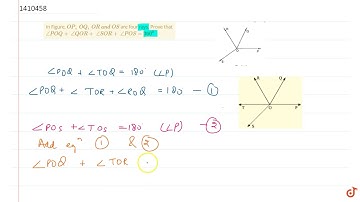 1410458
In Figure, OP, OQ, OR and OS are four rays. Prove that
∠POQ + ∠QOR + ∠SOR + ∠POS = 360°.
∠POQ + ∠TOQ = 180 (∠P)
∠POQ + ∠TOR + ∠ROQ = 180 - ①
∠POS + ∠TOS = 180 (∠P) - ②
Add eqⁿ ① & ②
∠POQ + ∠TOR